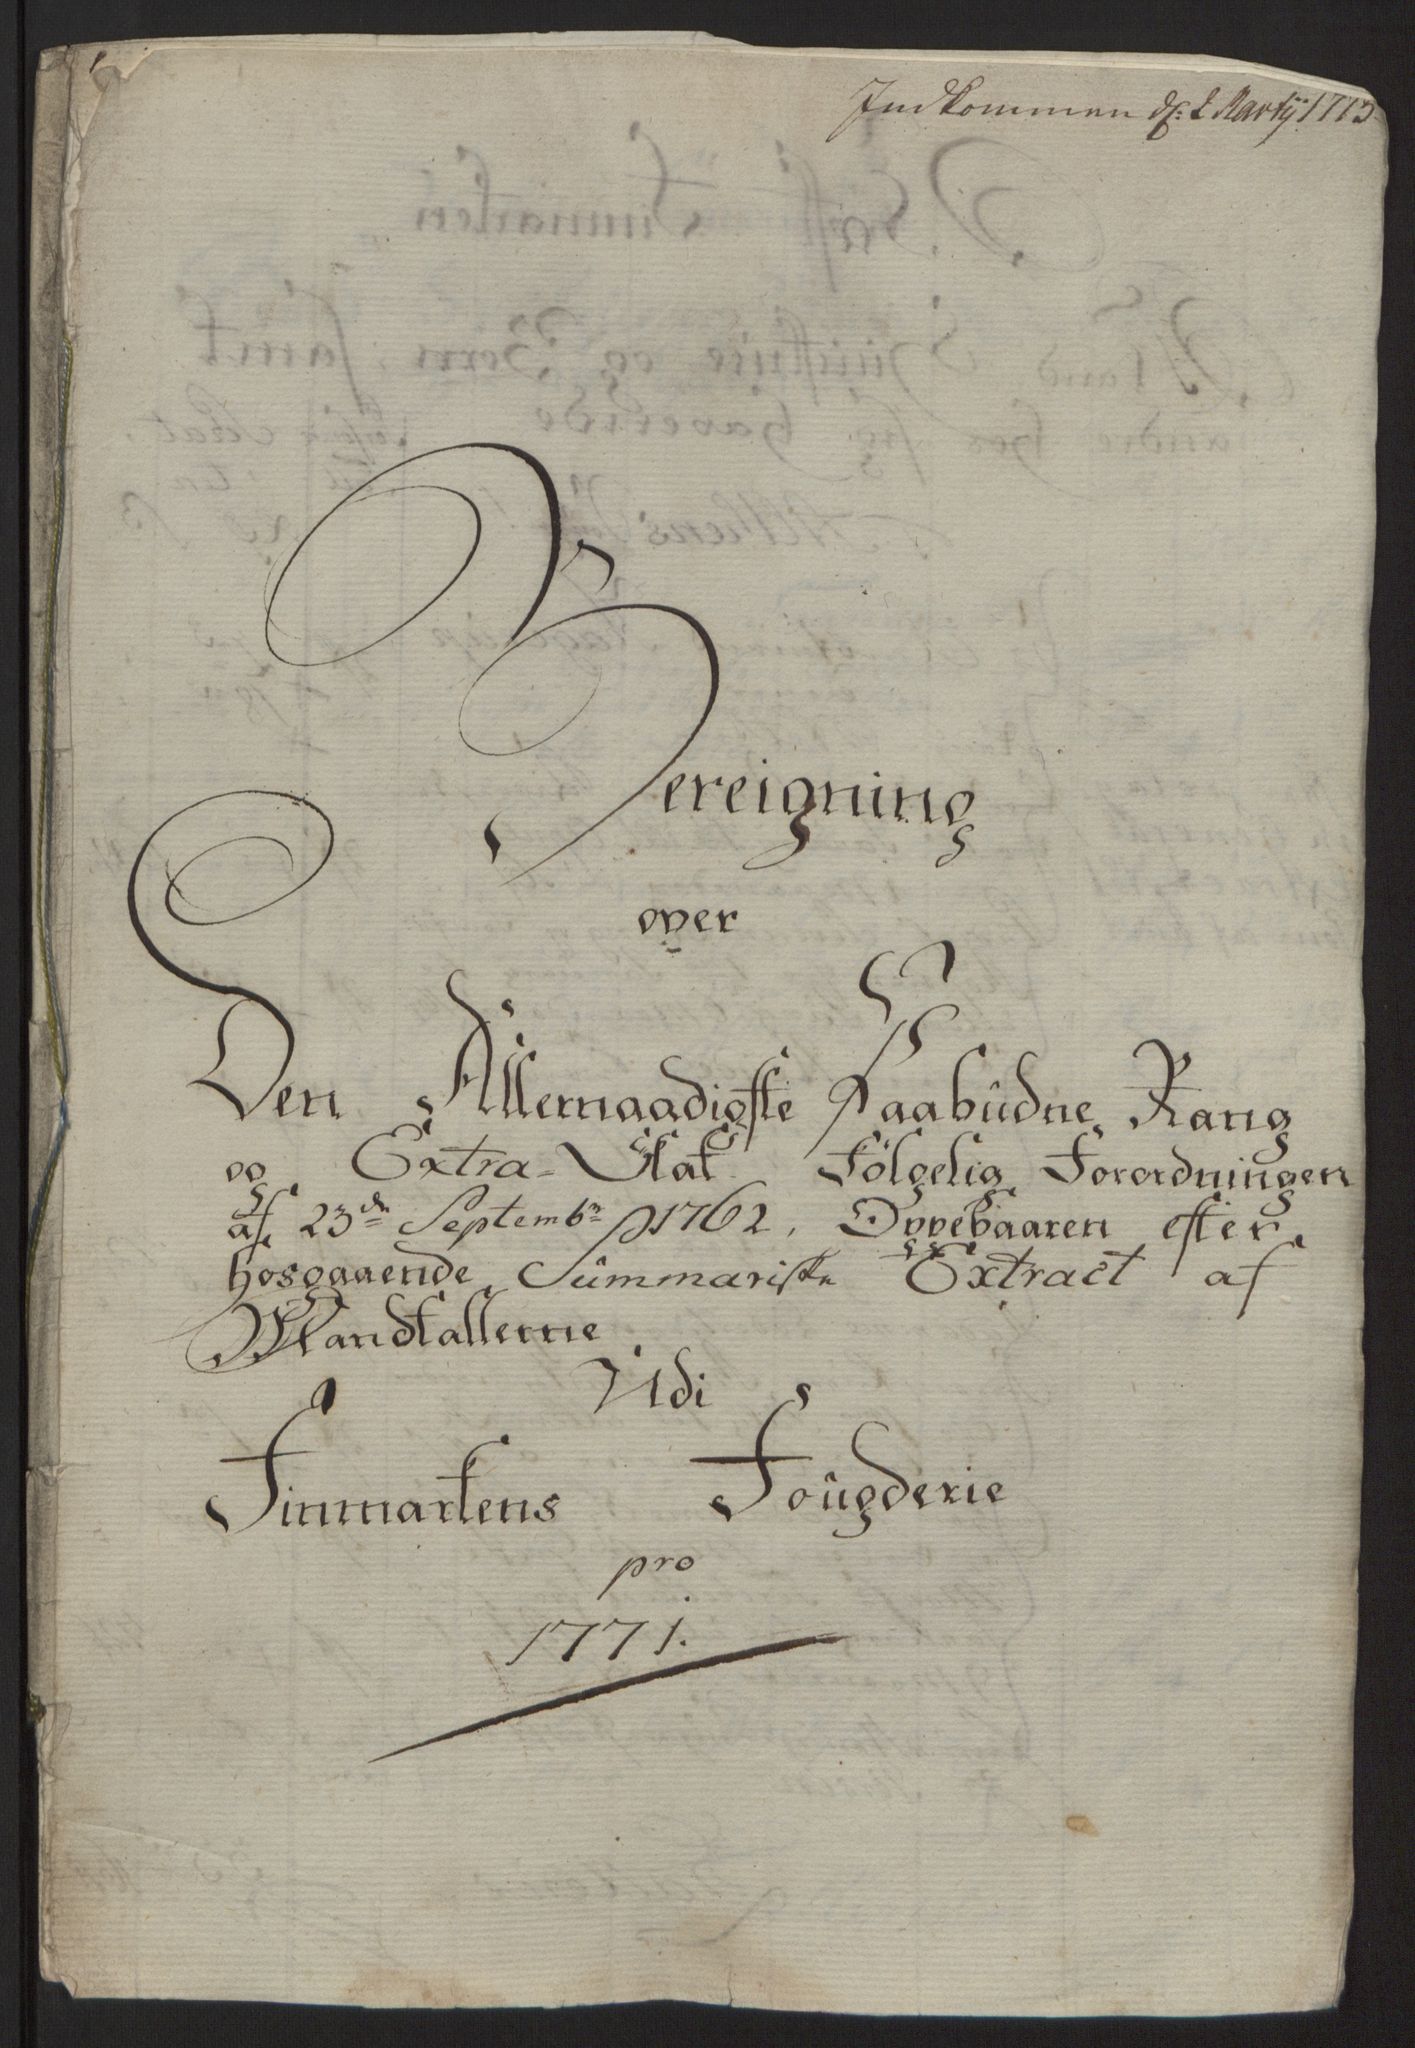 Indkommen d: 2 Martij 1773
Bereigning
over
Den Allernaadigste Paabudne Rang
og Extra-Skat Fölgelig Forordningen
af 23de Septembr 1762, Oppebaaren efter
hosgaaende Summariske Extract af
Mandtallerne
Udi
Finmarkens Fougderie
pro
1771.